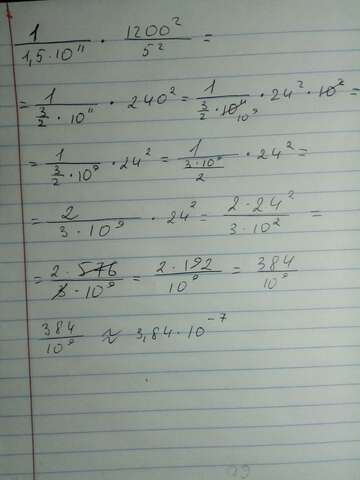 1/(1,5·10¹¹) · 1200²/5² =
= 1/(3/2 · 10¹¹) · 240² = 1/(3/2 · 10¹¹ 10⁹) · 24² · 10² =
= 1/(3/2 · 10⁹) · 24² = 1/(3·10⁹/2) · 24² =
= 2/(3·10⁹) · 24² = 2·24²/(3·10²) =
= 2·576/(3·10⁹) = 2·192/10⁹ = 384/10⁹
384/10⁹ ≈ 3,84·10⁻⁷